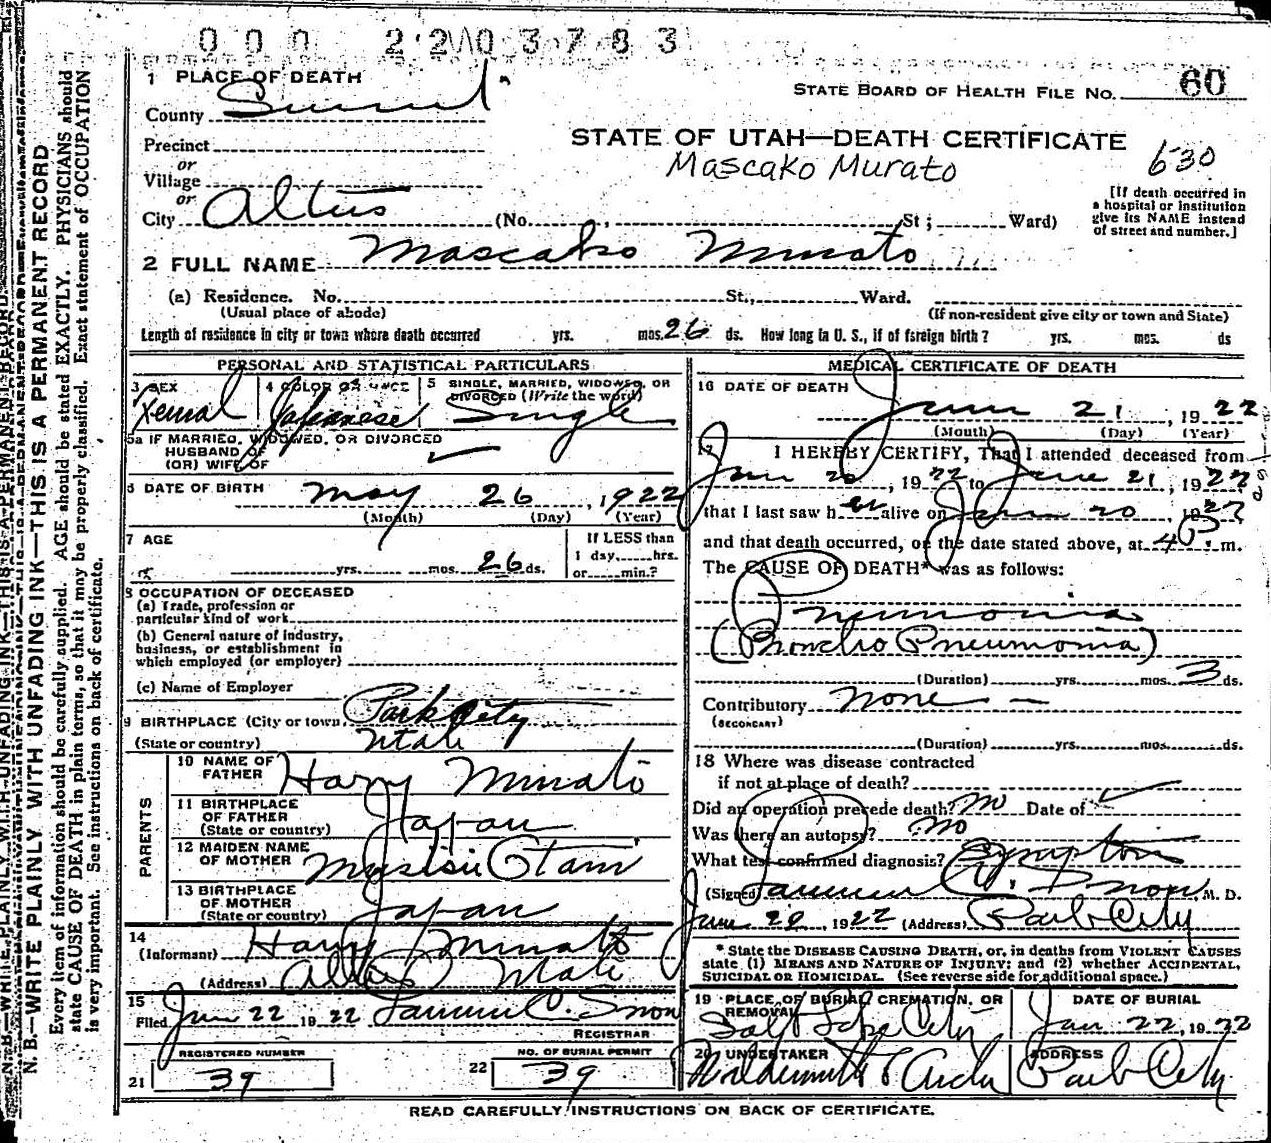 000 2203783
1 PLACE OF DEATH
County Summit
STATE BOARD OF HEALTH FILE NO. 60
STATE OF UTAH—DEATH CERTIFICATE
Precinct
Mascako Murato
630
or
Village
or
City Altus (No. St; Ward)
[If death occurred in a hospital or institution give its NAME instead of street and number.]
2 FULL NAME Mascako Murato
(a) Residence. No. St., Ward.
(Usual place of abode) (If non-resident give city or town and State)
Length of residence in city or town where death occurred yrs. mos. 26 ds. How long in U. S., if of foreign birth? yrs. mos. ds
PERSONAL AND STATISTICAL PARTICULARS
3 SEX Femal
4 COLOR OR RACE Japanese
5 SINGLE, MARRIED, WIDOWED, OR DIVORCED (Write the word) Single
5a IF MARRIED, WIDOWED, OR DIVORCED
HUSBAND OF
(OR) WIFE OF
6 DATE OF BIRTH May 26, 1922
(Month) (Day) (Year)
7 AGE yrs. mos. 26 ds.
If LESS than
1 day, hrs.
or min.?
8 OCCUPATION OF DECEASED
(a) Trade, profession or
particular kind of work
(b) General nature of industry,
business, or establishment in
which employed (or employer)
(c) Name of Employer
9 BIRTHPLACE (City or town Park City
(State or country) Utah
PARENTS
10 NAME OF FATHER Harry Minato
11 BIRTHPLACE OF FATHER (State or country) Japan
12 MAIDEN NAME OF MOTHER Otani
13 BIRTHPLACE OF MOTHER (State or country) Japan
14 (Informant) Harry Minato
(Address) Altus Utah
15 Filed Jun 22 1922 C. Snow
REGISTRAR
REGISTERED NUMBER
21 39
NO. OF BURIAL PERMIT
22 39
MEDICAL CERTIFICATE OF DEATH
16 DATE OF DEATH
June 21, 1922
(Month) (Day) (Year)
17 I HEREBY CERTIFY, That I attended deceased from
Jun 20, 1922 to June 21, 1922
that I last saw her alive on June 20 1922
and that death occurred, on the date stated above, at 4 P. m.
The CAUSE OF DEATH* was as follows:
Pneumonia
(Broncho Pneumonia)
(Duration) yrs. mos. 3 ds.
Contributory none —
(SECONDARY)
(Duration) yrs. mos. ds.
18 Where was disease contracted
if not at place of death?
Did an operation precede death? no Date of
Was there an autopsy? no
What test confirmed diagnosis? Symptoms
(Signed) C. Snow, M. D.
June 1922 (Address) Park City
* State the DISEASE CAUSING DEATH, or, in deaths from VIOLENT CAUSES
state (1) MEANS AND NATURE OF INJURY; and (2) whether ACCIDENTAL,
SUICIDAL OR HOMICIDAL. (See reverse side for additional space.)
19 PLACE OF BURIAL CREMATION, OR REMOVAL Salt Lake City
DATE OF BURIAL Jun 22, 1922
20 UNDERTAKER
ADDRESS Park City
READ CAREFULLY INSTRUCTIONS ON BACK OF CERTIFICATE.
N. B.—WRITE PLAINLY WITH UNFADING INK—THIS IS A PERMANENT RECORD
Every item of information should be carefully supplied. AGE should be stated EXACTLY. PHYSICIANS should
state CAUSE OF DEATH in plain terms, so that it may be properly classified. Exact statement of OCCUPATION
is very important. See instructions on back of certificate.